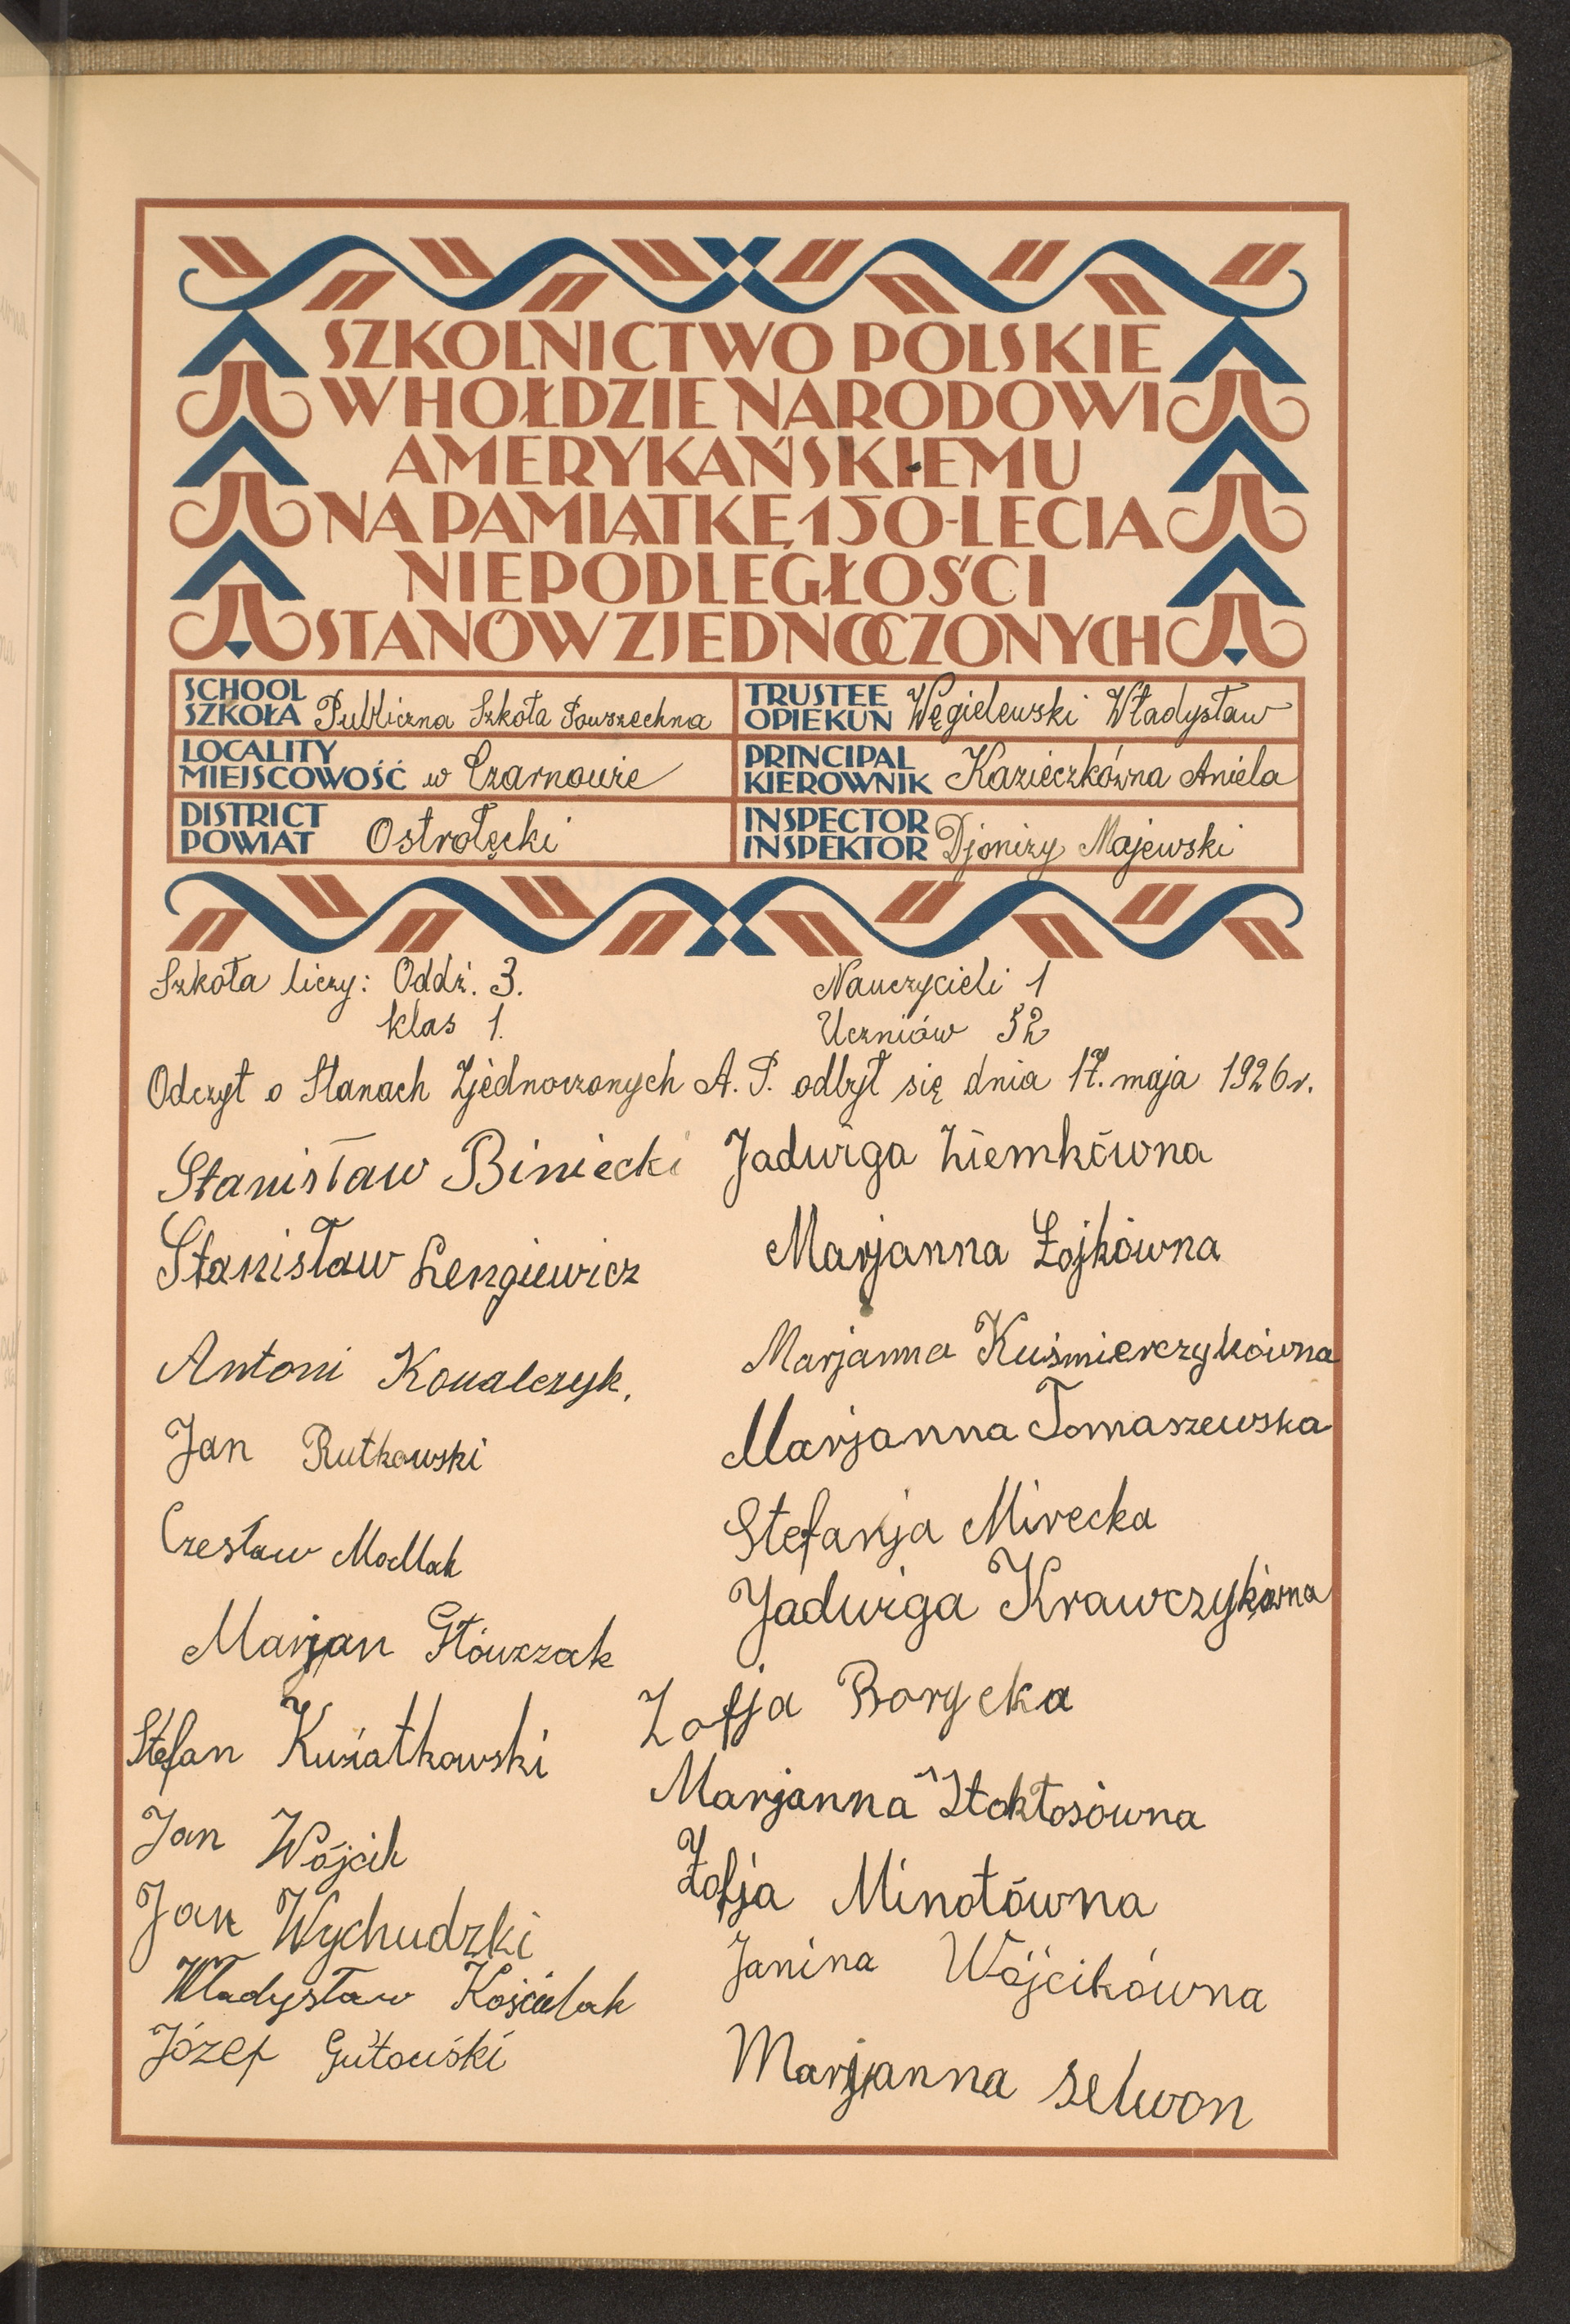 SZKOLNICTWO POLSKIE
W HOŁDZIE NARODOWI
AMERYKAŃSKIEMU
NA PAMIĄTKĘ 150-LECIA
NIEPODLEGŁOŚCI
STANÓW ZJEDNOCZONYCH
SCHOOL
SZKOŁA Publiczna Szkoła Powszechna
TRUSTEE
OPIEKUN Węgielewski Władysław
LOCALITY
MIEJSCOWOŚĆ w Czarnowie
PRINCIPAL
KIEROWNIK Kazieczkówna Aniela
DISTRICT
POWIAT Ostrołęcki
INSPECTOR
INSPEKTOR Djonizy Majewski
Szkoła liczy: Oddz. 3. Nauczycieli 1
klas 1. Uczniów 52
Odczyt o Stanach Zjednoczonych A. P. odbył się dnia 17. maja 1926 r.
Stanisław Biniecki
Stanisław Lengiewicz
Antoni Kowalczyk.
Jan Rutkowski
Czesław Modlak
Marjan Główczak
Stefan Kwiatkowski
Jan Wójcik
Jan Wychudzki
Władysław Kościelak
Józef Gutowski
Jadwiga Ziemkówna
Marjanna Łojkówna
Marjanna Kuśmierczykówna
Marjanna Tomaszewska
Stefanja Mirecka
Jadwiga Krawczykówna
Zofja Borycka
Marjanna Stokłosówna
Zofja Minotówna
Janina Wójcikówna
Marjanna Selwon